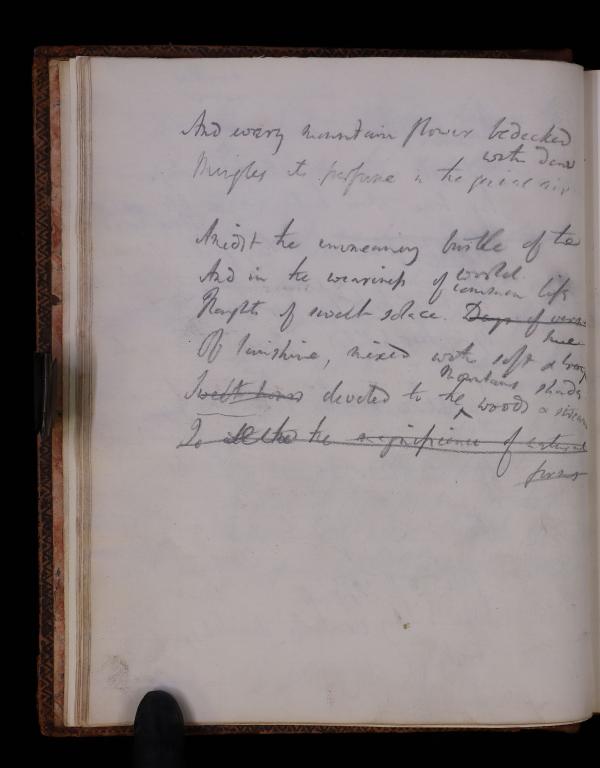 And every mountain flower bedecked
with dew
Mingles its perfume in the genial air.
Amidst the unmeaning bustle of the
world
And in the weariness of common life
Thoughts of sweet solace. Days of
hue
Of sunshine, mixed with soft &
mountains shade
Sweet hours devoted to the woods & streams
To the magnificence of natural
forms